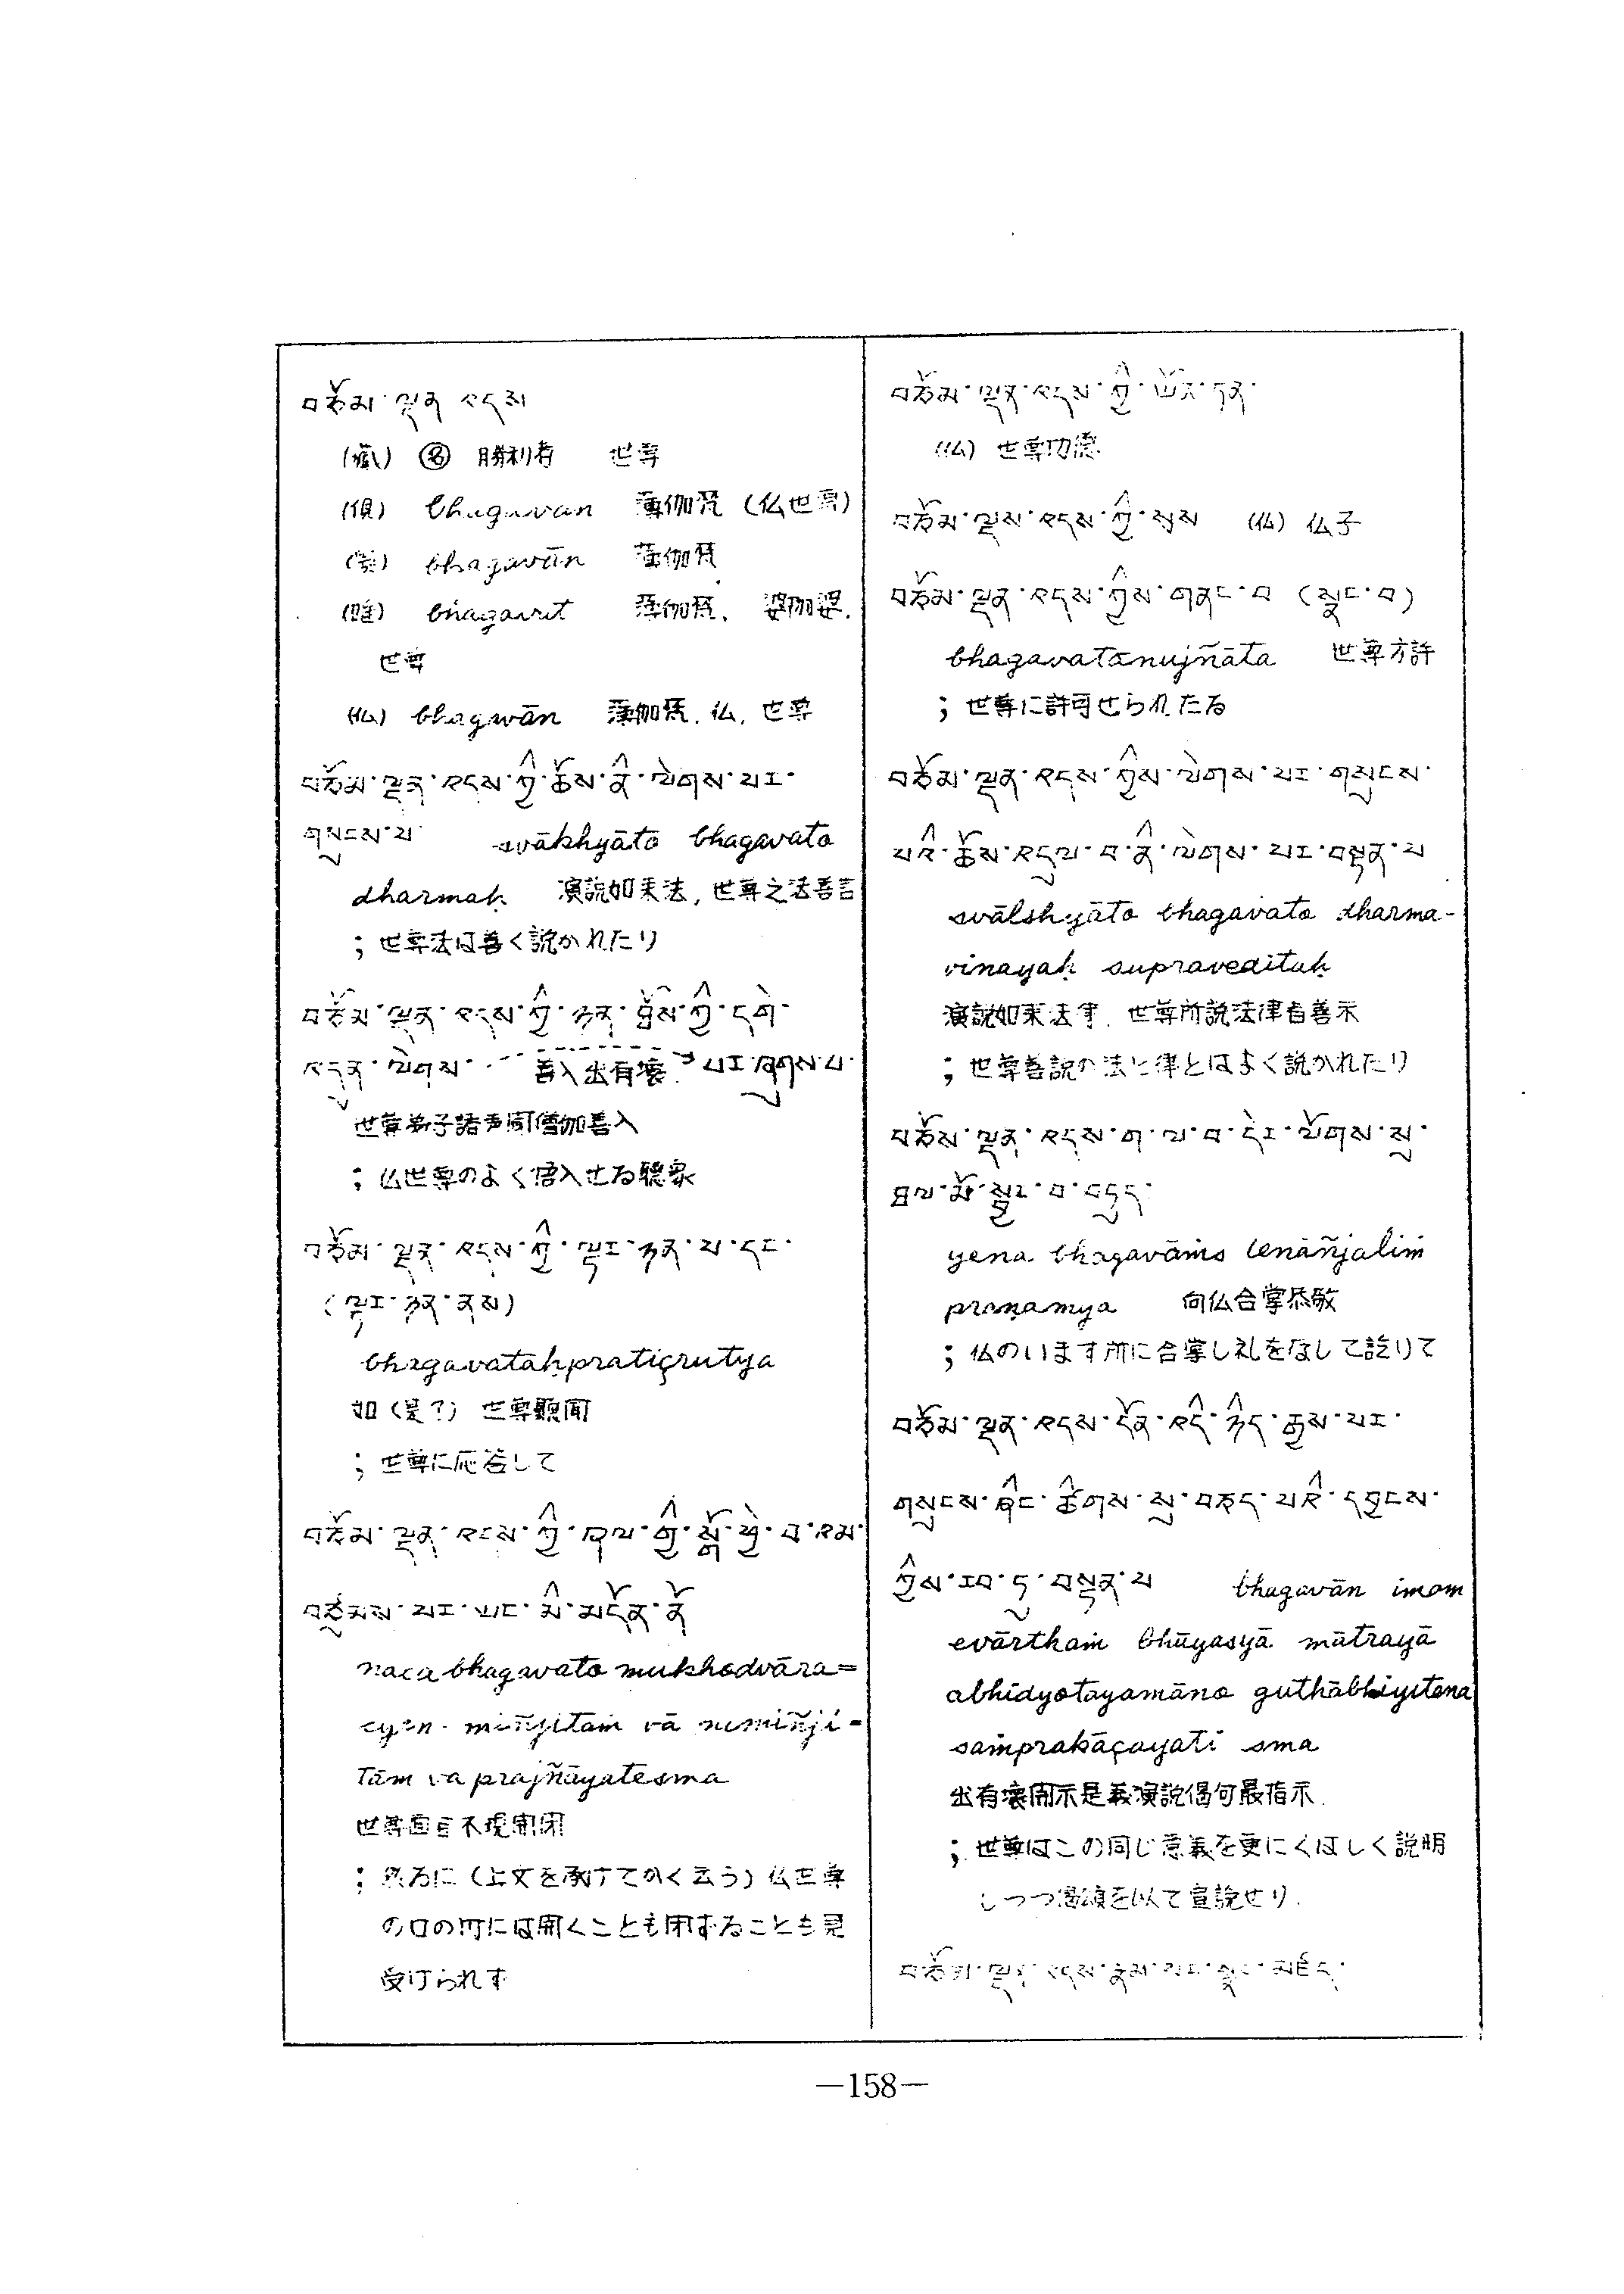 བཅོམ་ལྡན་འདས
(蔵) ㊔ 勝利者 世尊
(倶) bhagavan 薄伽梵 (仏世尊)
bhagavān 薄伽梵
(唯) bhagavat 薄伽梵. 婆伽婆.
世尊
(仏) bhagavān 薄伽梵. 仏. 世尊
བཅོམ་ལྡན་འདས་ཀྱི་ཆོས་ནི་ལེགས་པར་
གསུངས་པ་ svākhyāto bhagavato
dharmaḥ 演説如来法, 世尊之法善言
; 世尊法は善く説かれたり
བཅོམ་ལྡན་འདས་ཀྱི་ཉན་ཐོས་ཀྱི་དགེ་
འདུན་ལེགས་ 善入出有壊 པར་ཞུགས་པ་
世尊弟子諸声聞僧伽善入
; 仏世尊のよく悟入せる聴衆
བཅོམ་ལྡན་འདས་ཀྱི་ལྟར་ཉན་པ་དང་
(ལྟར་ཉན་ནས)
bhagavataḥpratiçrutya
如 (是?) 世尊聴聞
; 世尊に応答して
བཅོམ་ལྡན་འདས་ཀྱི་ཞལ་གྱི་སྒོ་ཕྱེ་བ་འམ་
བཙུམས་པར་ཡང་མི་མངོན་ནོ
naca bhagavato mukhadvāra=
miñjitaṁ vā nimiñji-
tām va prajñāyatesma
世尊面門不現開閉
; 然るに (上文を承けてかく云う) 仏世尊
の口の門には開くことも閉ずることも見
受けられず
བཅོམ་ལྡན་འདས་ཀྱི་ཡོན་ཏན་
(仏) 世尊功徳.
བཅོམ་ལྡན་འདས་ཀྱི་སྲས (仏) 仏子
བཅོམ་ལྡན་འདས་ཀྱིས་གནང་བ (སྣང་བ)
bhagavatānujñāta 世尊方許
; 世尊に許可せられたる
བཅོམ་ལྡན་འདས་ཀྱིས་ལེགས་པར་གསུངས་
པའི་ཆོས་འདུལ་བ་ནི་ལེགས་པར་བསྟན་པ
svālshyāto bhagavata dharma-
vinayaḥ supraveditaḥ
演説如来法律. 世尊所説法律者善示
; 世尊善説の法と律とはよく説かれたり
བཅོམ་ལྡན་འདས་ག་ལ་བ་དེར་ལོགས་སུ་
ཐལ་མོ་སྦྱར་བ་བཏུད་
yena bhagavāṁs tenāñjaliṁ
praṇamya 向仏合掌恭敬
; 仏のいます所に合掌し礼をなして訖りて
བཅོམ་ལྡན་འདས་དོན་འདི་ཉིད་རྒྱས་པར་
གསུངས་ཤིང་ཚིགས་སུ་བཅད་པའི་དབྱངས་
ཀྱིས་རབ་ཏུ་བསྟན་པ bhagavān imam
evārthaṁ bhūyasyā mātrayā
abhidyotayamāno guthābhigitena
saṁprakāçayati sma
出有壊開示是義演説偈何最指示.
; 世尊はこの同じ意義を更にくはしく説明
しつつ偈頌を以て宣説せり.
བཅོམ་ལྡན་འདས་རྣམ་པར་སྣང་མཛད་
—158—